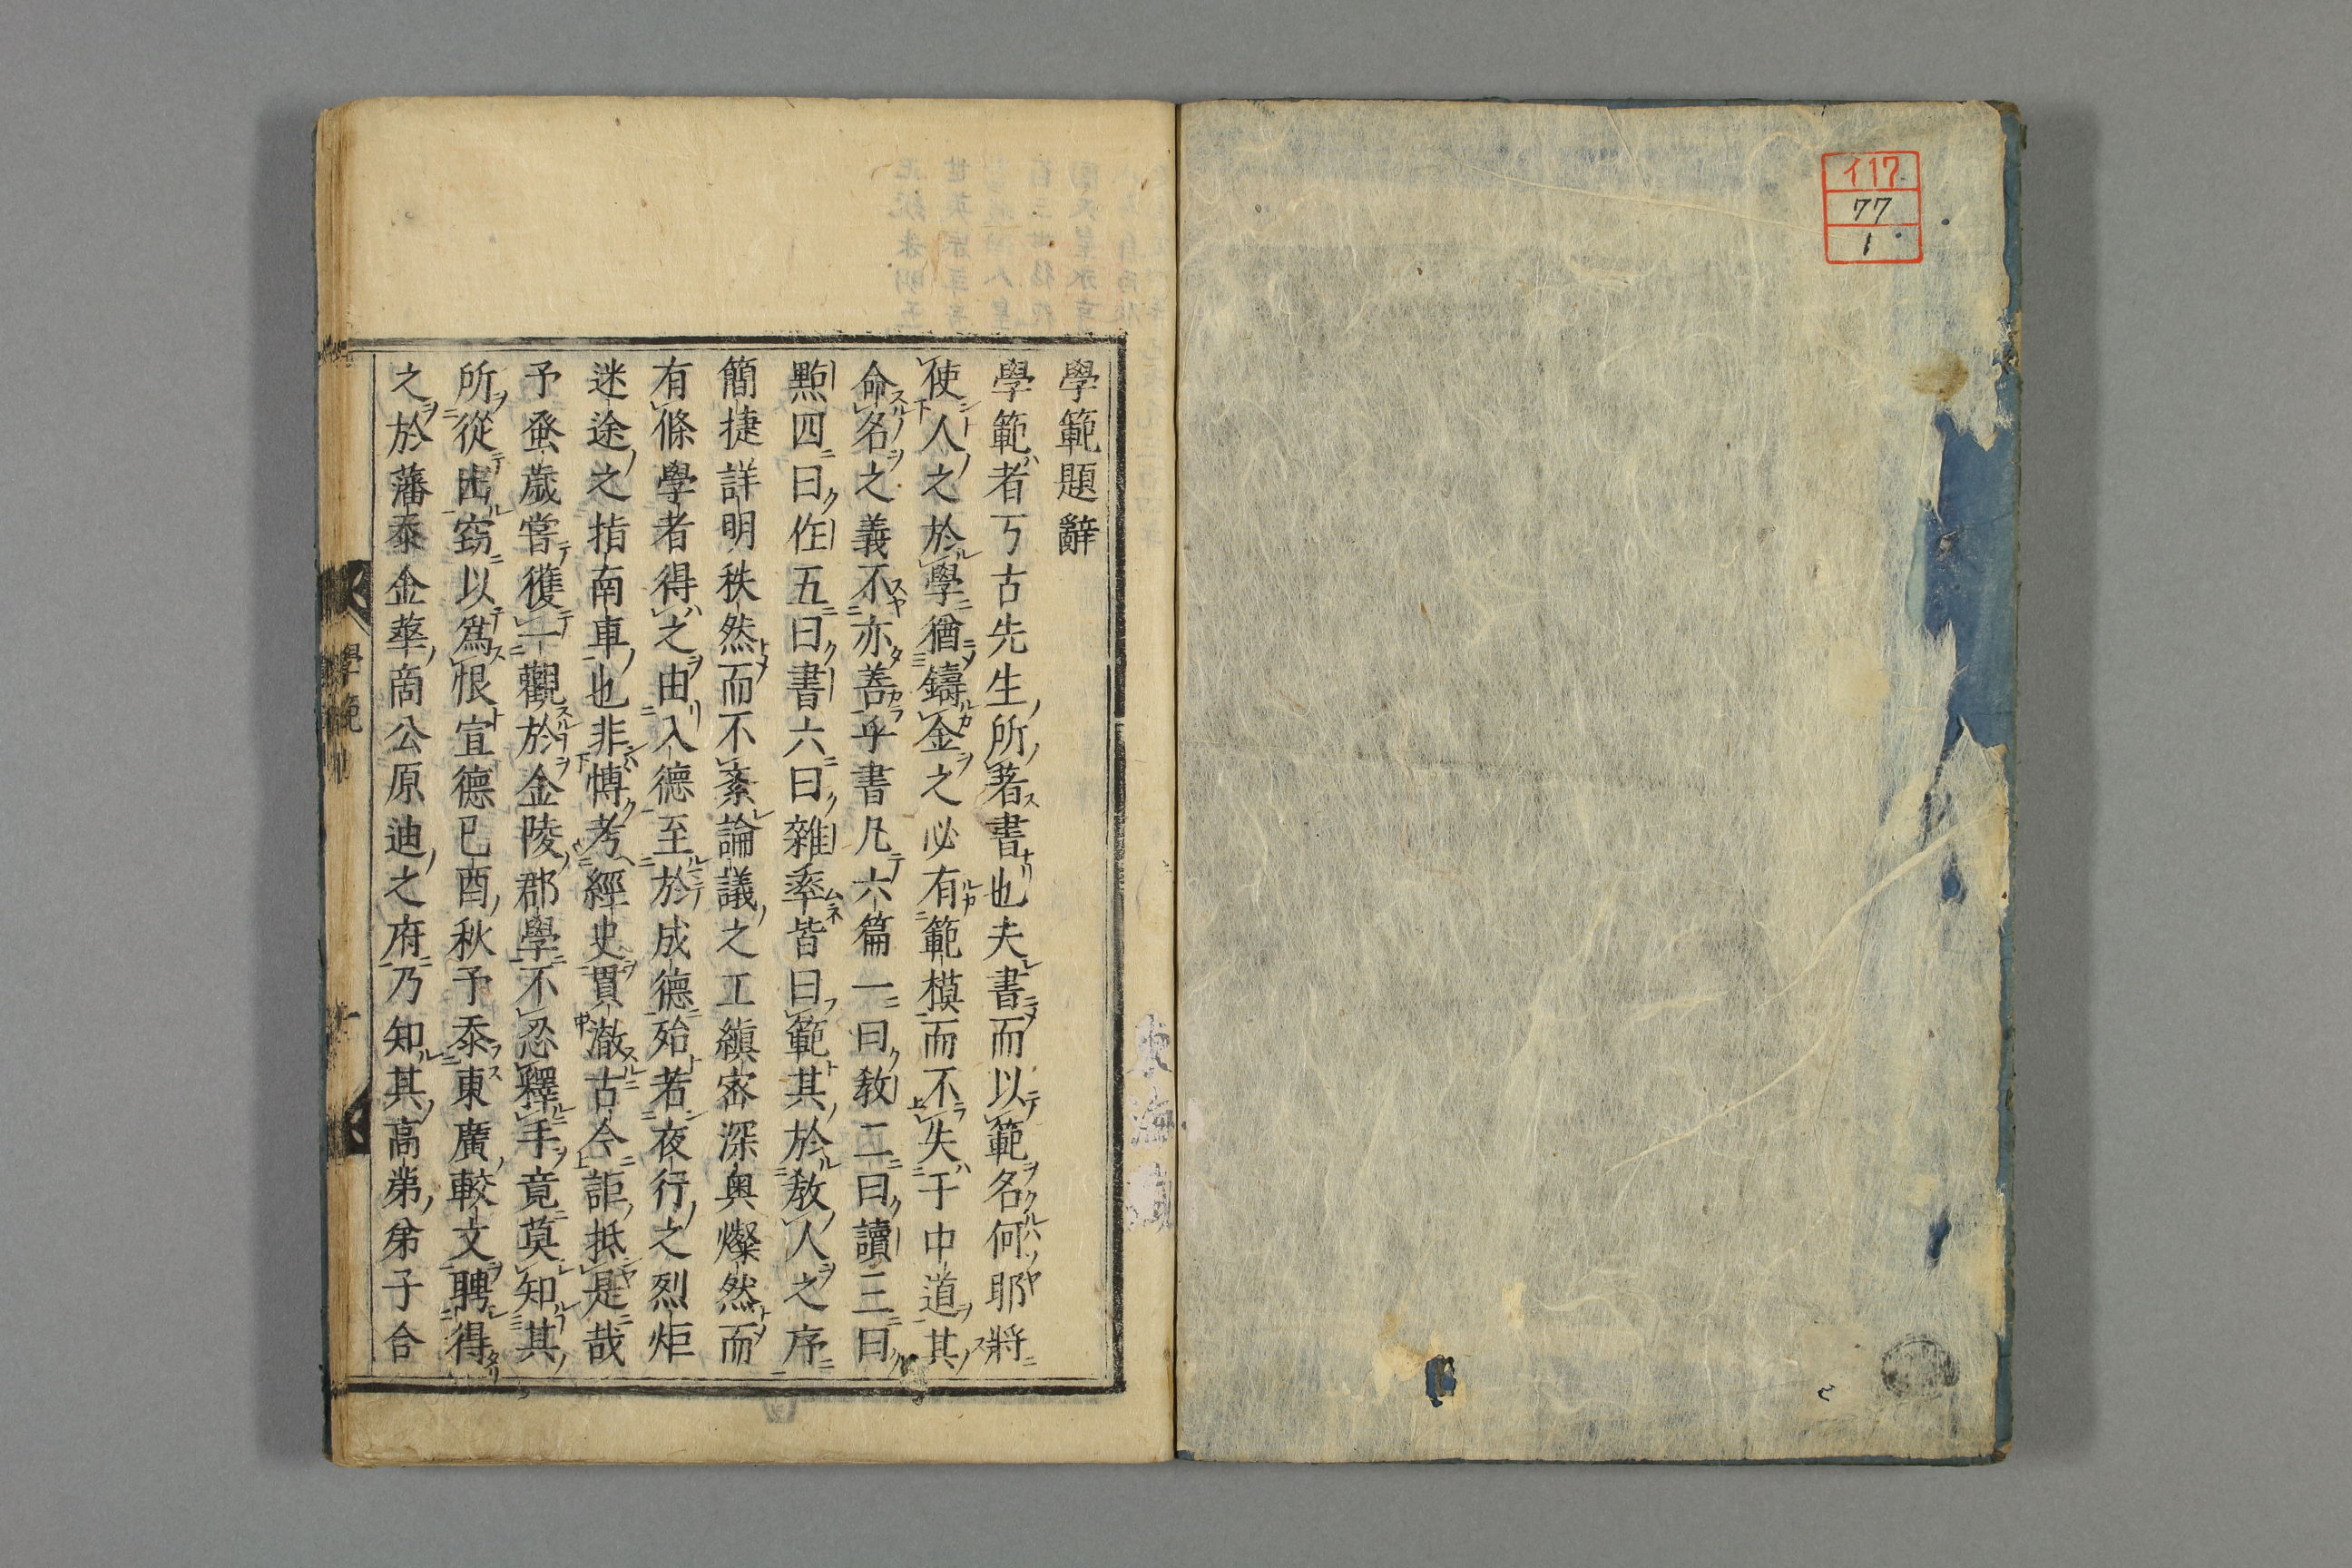 イ17
77
1
學範題辭
學範者丂古先生所著書也夫書而以範名何耶將
使人之於學猶鑄金之必有範模而不失于中道其
命名之義不亦善乎書凡六篇一曰教二曰讀三曰
㸃四曰作五曰書六曰雜率皆曰範其於敎人之序
簡捷詳明秩然而不紊論議之工縝宻深奥燦然而
有條學者得之由入德至於成德殆若夜行之烈炬
迷途之指南車也非愽考經史貫澈古今詎抵是哉
予蚤歲嘗獲一觀於金陵郡學不忍釋手竟莫知其
所從出竊以爲恨宣德已酉秋予忝東廣較文聘得
之於藩泰金華商公原迪之府乃知其高弟弟子合
學範
一